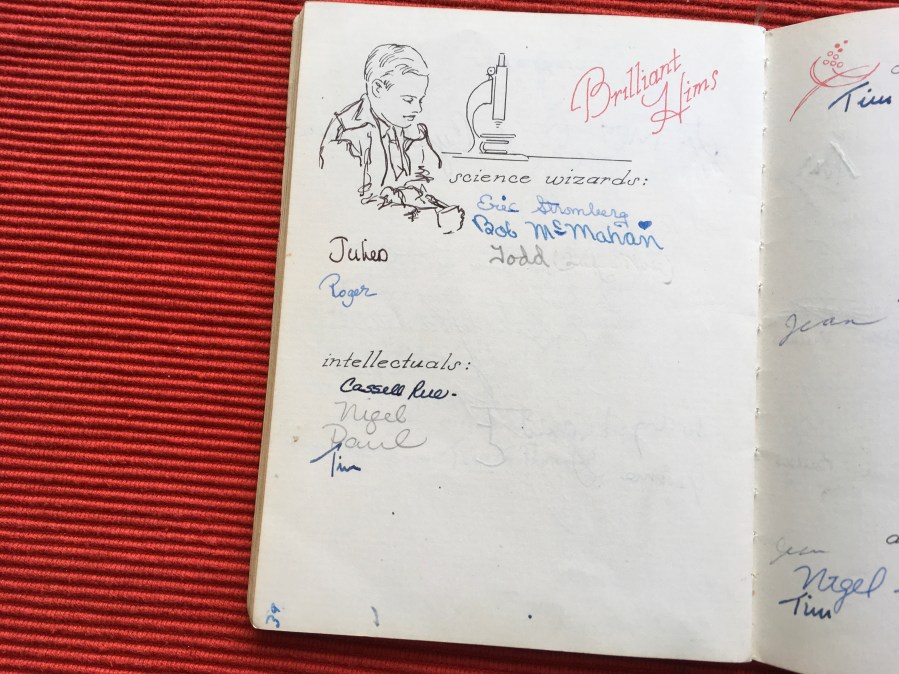 Brilliant
Hims
science wizards:
Eric Stromberg
Bob McMahan
Todd
Jules
Roger
intellectuals:
Cassell Rue.
Nigel
Paul
Tim
34
Tim
Jean
Jean
Nigel
Tim